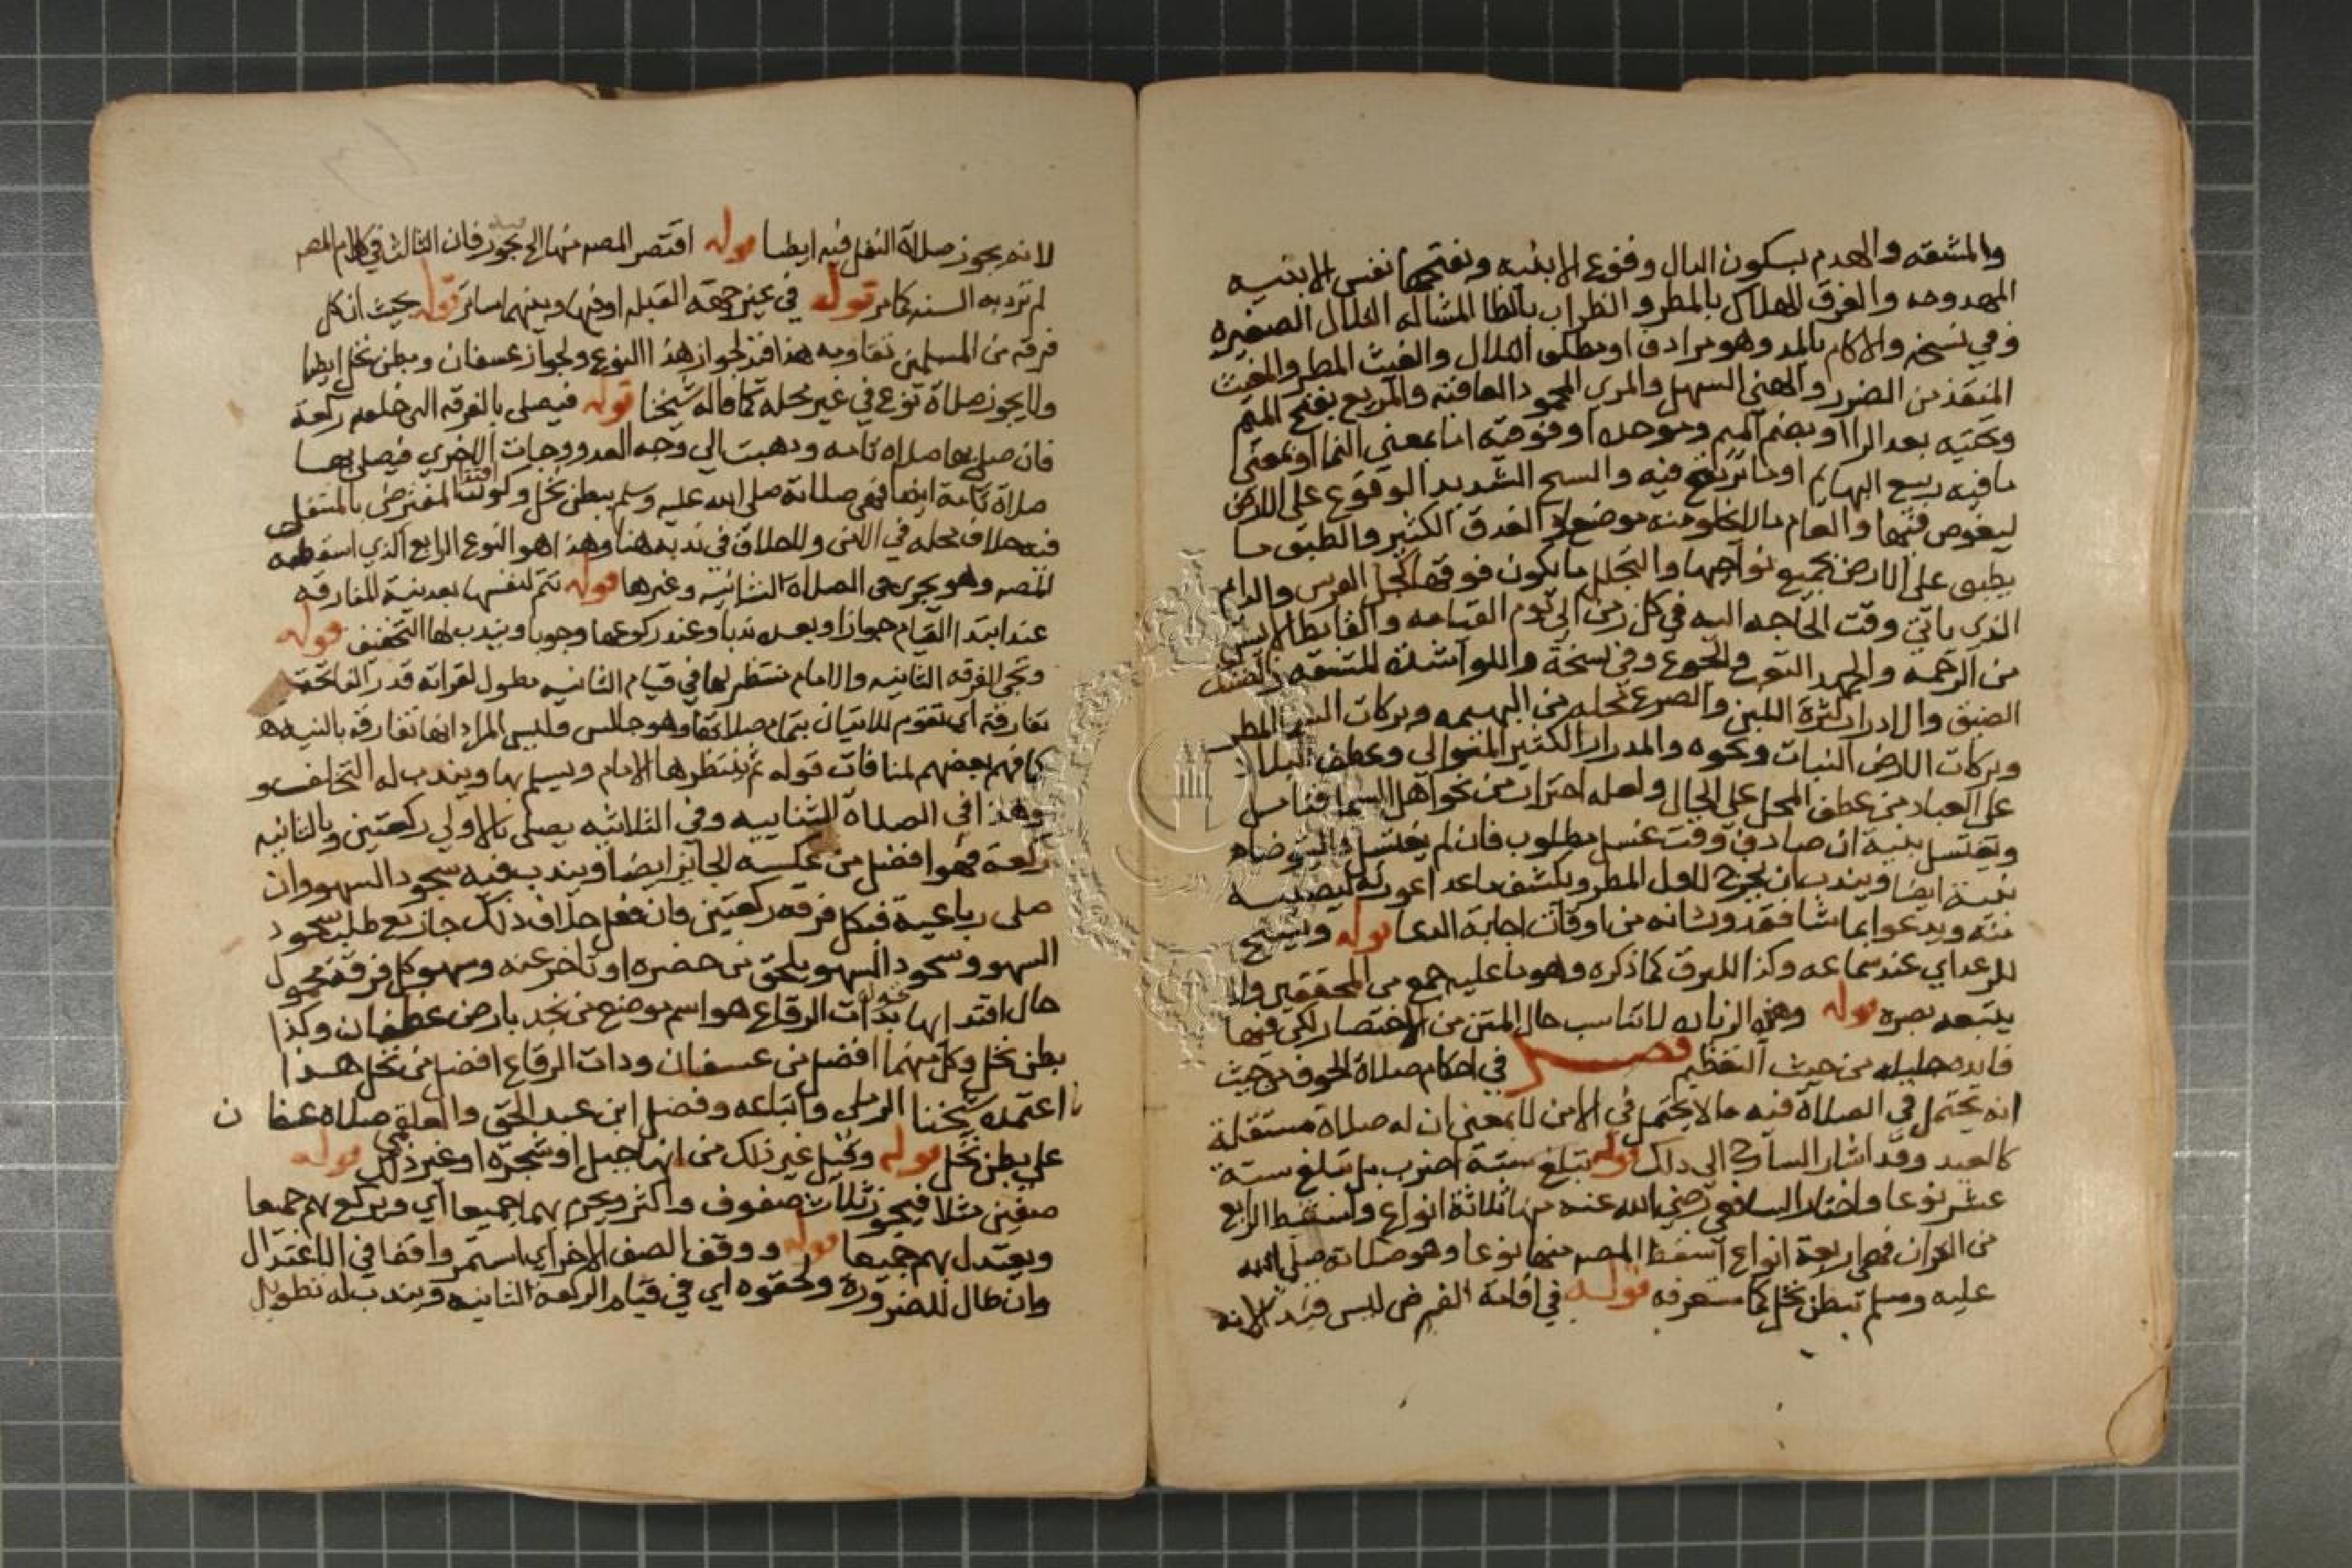 والمشقه والهدم بسكون الدال وقوع الابنيه وبفتحها نفس الابنيه
المهدومه والغرق الهلاك بالمطر والظراب بالظا المشاله التلال الصغيره
وفي نسخه والاكام بالمد وهو مرادف او مطلق التلال والغيث المطر والمغيث
المنقذ من الضرر والهني السهل والمري المحمود العاقبة والمريع بفتح الميم
وتحتيه بعد الرا او بضم الميم وموحده او فوقيه اما بمعنى النما او بمعنى
ما فيه ربيع البهايم او ما ترتع فيه والسح الشديد الوقوع على الارض
ليغوص فيها والعام ما لا يخلو منه موضع والغدق الكثير والطبق ما
يطبق على الارض بجميع نواحيها والمجلل ما يكون فوقها كجل الفرس والدايم
الذي ياتي وقت الحاجه اليه في كل زمن الى يوم القيامه والقانط الايس
من الرحمه والجهد التعب والجوع وفي نسخة واللوا شدة المشقه والضنك
الضيق والادرار كثرة اللبن والضرع محله من البهيمه وبركات السما المطر
وبركات الارض النبات ونحوه والمدرار الكثير المتوالي وعطف البلاد
على العباد من عطف المحل على الحال ولعله احتراز من نحو اهل السما فتامل
ويغتسل بنية ان صادف وقت غسل مطلوب فان لم يغتسل فليتوضا
بنية ايضا ويندب ان يخرج لاول المطر ويكشف ما عدا عورته ليصيبه
منه ويدعوا بما شا فقد ورد انه من اوقات اجابة الدعا قوله ويسبح
للرعد اي عند سماعه وكذا للبرق كما ذكره وهو ما عليه جمع من المحققين ولا
يتبعه بصره قوله وهذه الزياده لا تناسب حال المتن من الاختصار لكن فيها
فايده جليله من حيث التعظيم فصل في احكام صلاة الخوف من حيث
انه يحتمل في الصلاة فيه ما لا يحتمل في الامن لا بمعنى ان له صلاة مستقلة
كالعيد وقد اشار الشارح الى ذلك قوله تبلغ ستة اضرب بل تبلغ ستة
عشر نوعا واختار الشافعي رضي الله عنه منها ثلاثة انواع واسقط الرابع
من القران فهي اربعة انواع اسقط المصـ منها نوعا وهو صلاته صلى الله
عليه وسلم ببطن نخل كما ستعرفه قوله في اقامة الفرض ليس قيد الانه
لانه يجوز صلاة النفل فيه ايضا قوله اقتصر المصـ منها الى يجوز فان الثالث في كلام المصـ
لم ترد به السنه كما مر قوله في غير جهة القبله او فيها وبينهما ساتر قوله بحيث ان كل
فرقة من المسلمين تقاومه هذا قيد لجواز هذا النوع ولجواز عسفان وبطن نخل ايضا
ولا يجوز صلاة نوع في غير محله كما قاله شيخنا قوله فيصلى بالفرقه التي خلفه ركعة
فان صلى بها صلاة تامه وذهبت الى وجه العدو وجات الاخري فيصلي بها
صلاة تامة ايضا فهي صلاته صلى الله عليه وسلم ببطن نخل وكون اقتدا المفترض بالمتنفل
فيه خلاف محله في الامن والخلاف في ندبه هنا وهذا هو النوع الرابع الذي اسقطه
المصـ وهو يجري في الصلاة الثنائيه وغيرها قوله تتم لنفسها بعد نية المفارقه
عند ابتدا القيام جوازا وبعده ندبا وعند ركوعها وجوبا ويندب لها التخفيف قوله
وتجي الفرقه الثانيه والامام منتظر لها في قيام الثانيه مطول لقراته قدر الفاتحة
تفارقه اي تقوم للاتيان بتمام صلاتها وهو جالس وليس المراد انها تفارقه بالنيه
كما فهم بعضهم لمنافات قوله ثم ينتظرها الامام ويسلم بها ويندب له التخلف
وهذا في الصلاة الثنائيه وفي الثلاثيه يصلى بالاولى ركعتين وبالثانيه
ركعة فهو افضل من عكسه الجايز ايضا ويندب فيه سجود السهو وان
صلى رباعية فبكل فرقه ركعتين فان فعل خلاف ذلك جاز مع طلب سجود
السهو وسجود السهو يلحق من حضره او تاخر عنه وسهو كل فرقة محمول
حال اقتدايها قوله بذات الرقاع هو اسم موضع من نجد بارض غطفان وكذا
بطن نخل وكل منهما افضل من عسفان وذات الرقاع افضل من نخل هذا
ما اعتمده شيخنا الرملي واتباعه وفضل ابن عبد الحق والعلقمي صلاة عسفان
على بطن نخل قوله وقيل غير ذلك من انها جبل او شجره او غير ذلك قوله
صفين مثلا فيجوز ثلاث صفوف واكثر ويحرم بهما جميعا اي ويركع بهم جميعا
ويعتدل بهم جميعا قوله ووقف الصف الاخر اي استمر واقفا في الاعتدال
وان طال للضرورة ولحقوه اي في قيام الركعة الثانيه ويندب له تطويل